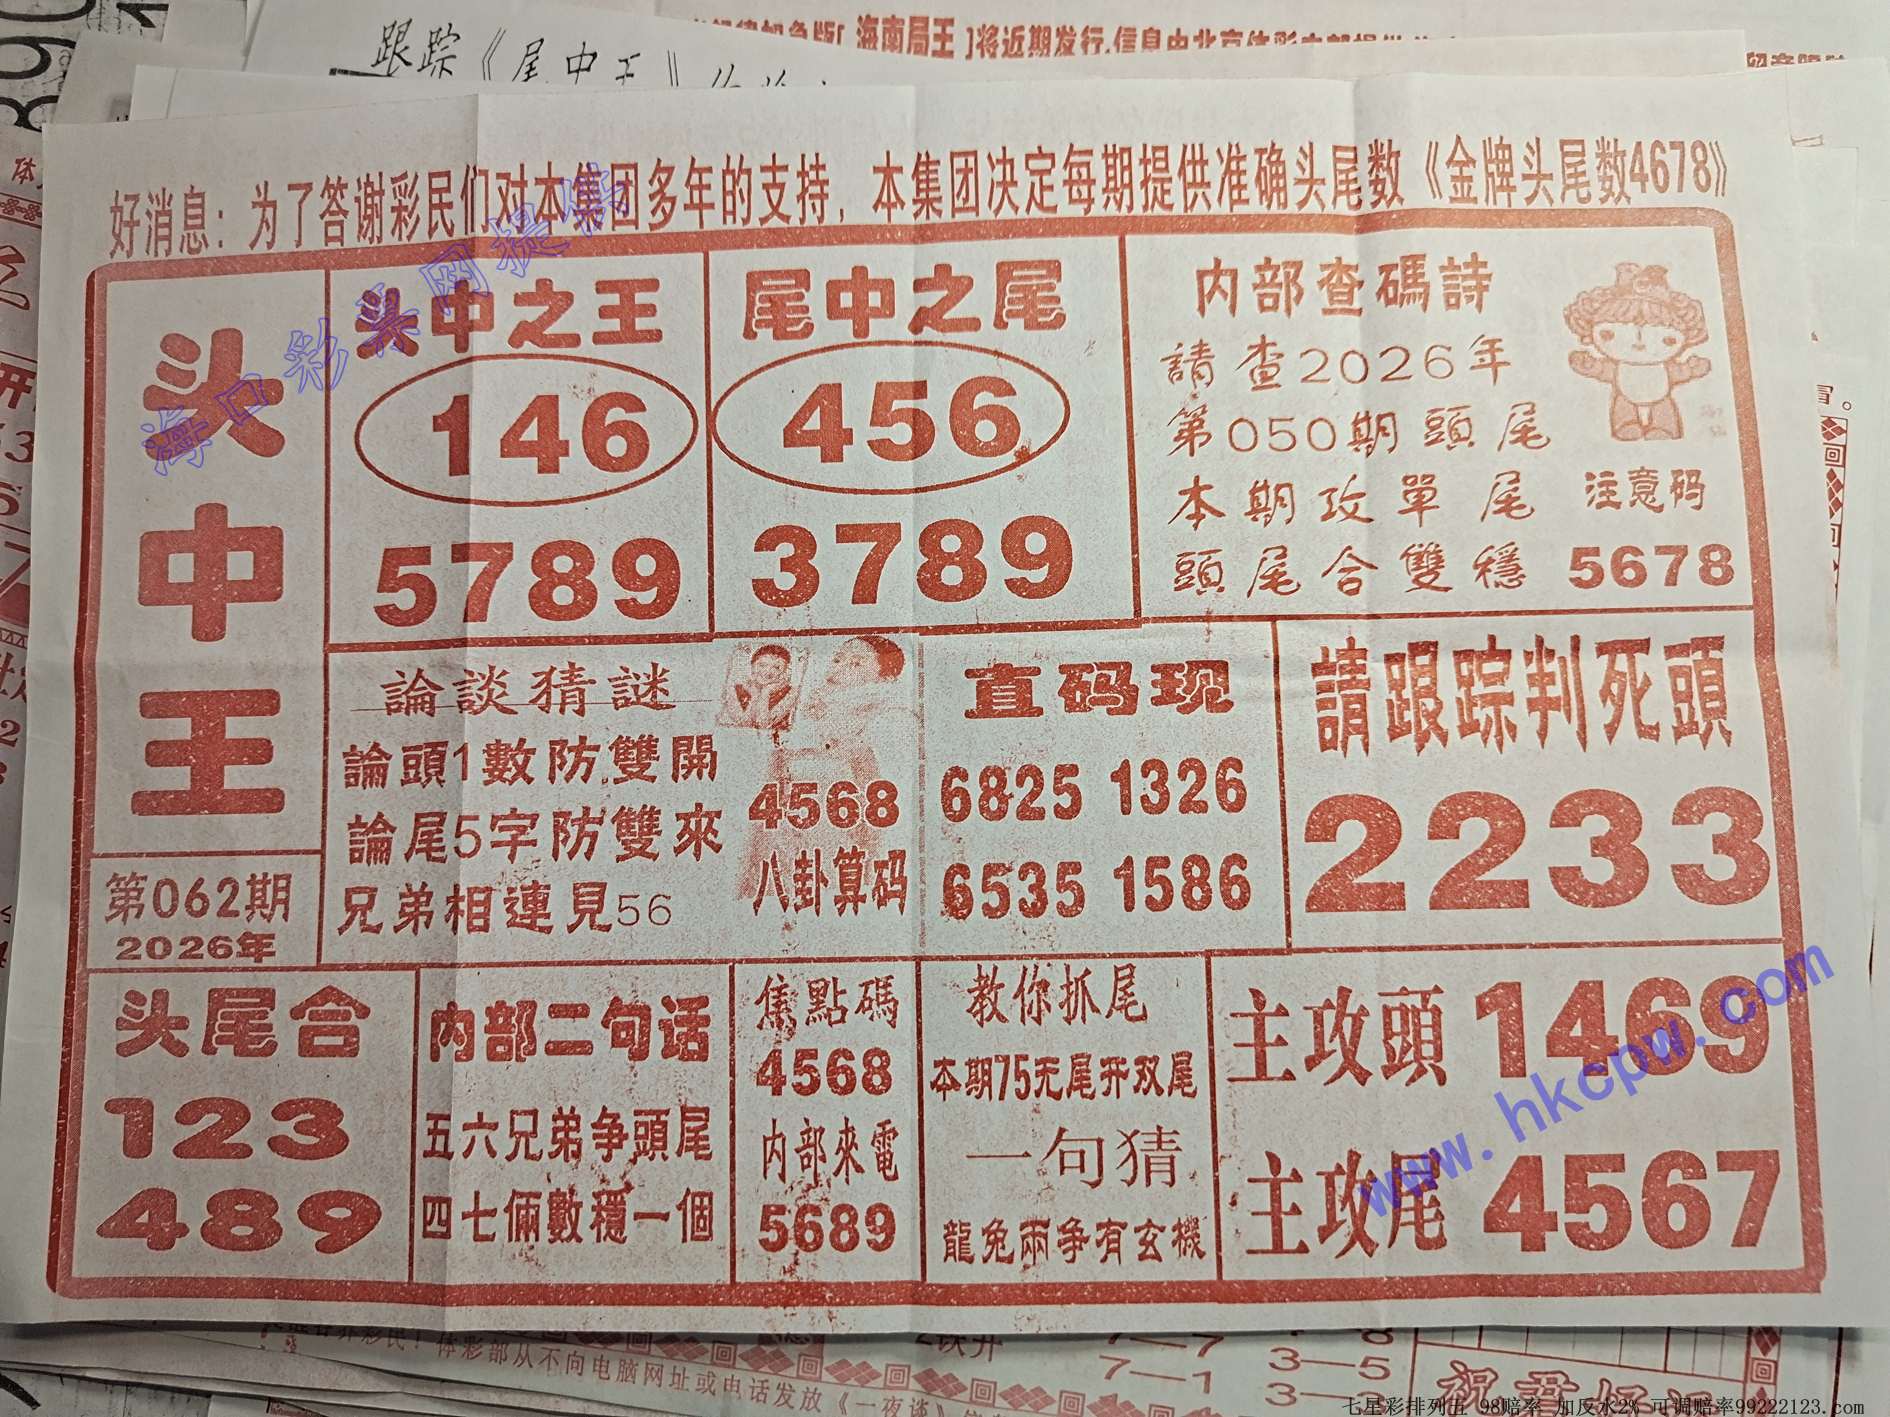 跟踪《尾中王》
海南局王】将近期发行,信息由北京体彩
好消息：为了答谢彩民们对本集团多年的支持，本集团决定每期提供准确头尾数《金牌头尾数4678》
头中王
第062期
2026年
头中之王
146
5789
尾中之尾
456
3789
内部查碼詩
請查2026年
第050期頭尾
本期攻單尾
頭尾合雙穩
注意码
5678
論談猜謎
論頭1數防雙開
論尾5字防雙來
兄弟相連見56
4568
八卦算码
直码现
6825 1326
6535 1586
請跟踪判死頭
2233
头尾合
123
489
内部二句话
五六兄弟争頭尾
四七倆數穩一個
焦點碼
4568
内部來電
5689
教你抓尾
本期75无尾开双尾
一句猜
龍兔兩争有玄機
主攻頭 1469
主攻尾 4567
海口彩票网提供
www.hkcpw.com
体彩部从不向电脑网址或电话发放《一夜谈》
7—7
7—1
3—5
七星彩排列五 98赔率 加反水2% 可调赔率99222123.com